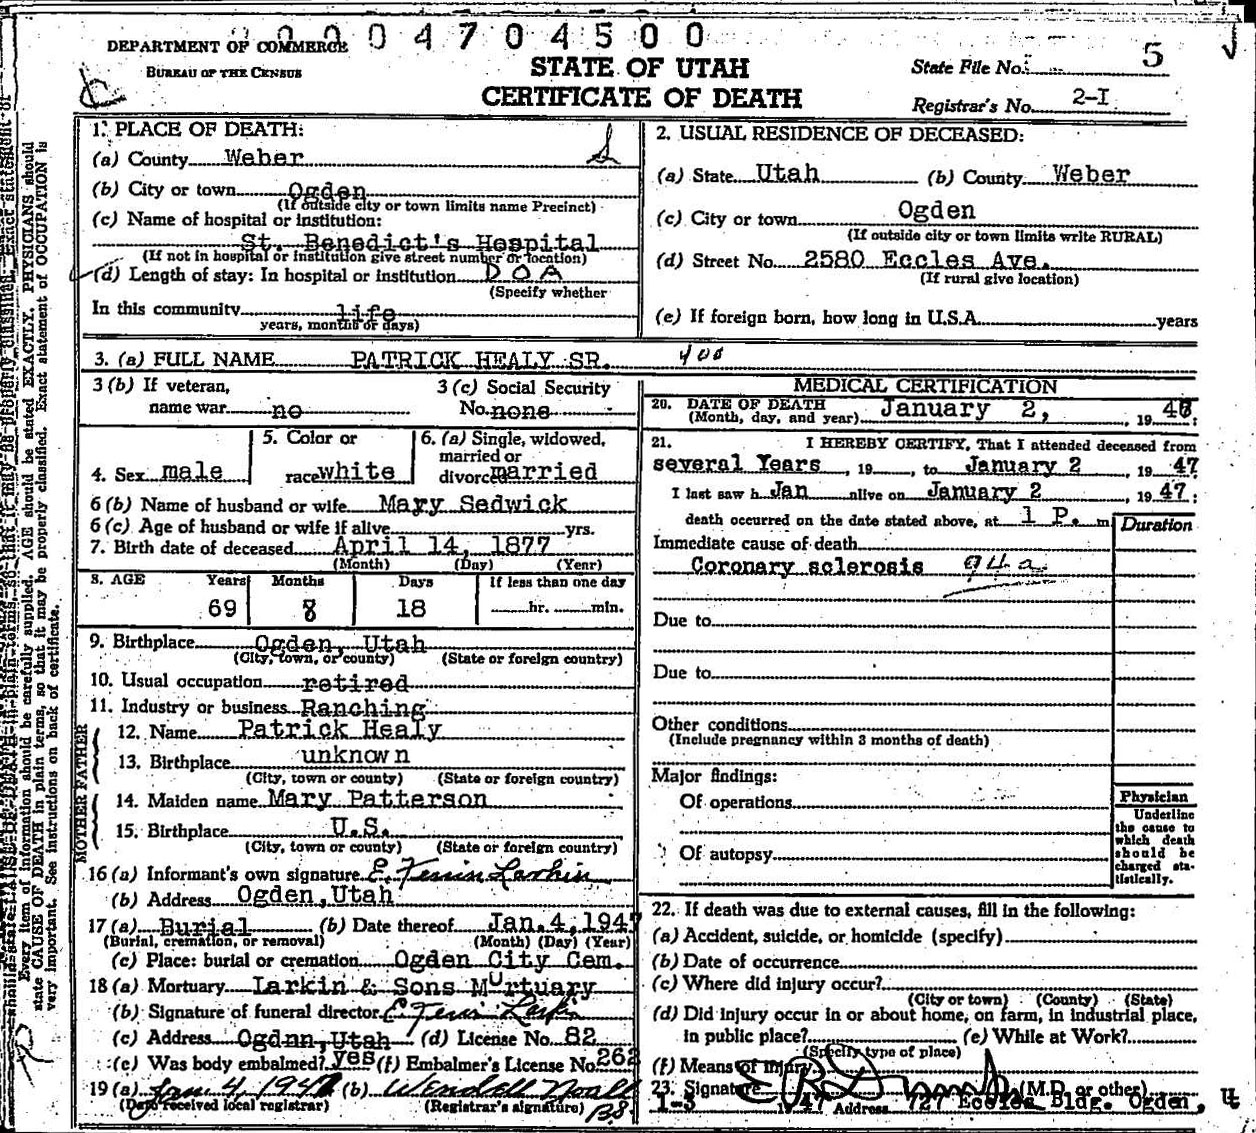 0 0 0 4 7 0 4 5 0 0
DEPARTMENT OF COMMERCE
BUREAU OF THE CENSUS
STATE OF UTAH
CERTIFICATE OF DEATH
State File No. 5
Registrar's No. 2-I
1. PLACE OF DEATH:
(a) County Weber
(b) City or town Ogden
(If outside city or town limits name Precinct)
(c) Name of hospital or institution:
St. Benedict's Hospital
(If not in hospital or institution give street number or location)
(d) Length of stay: In hospital or institution D O A
(Specify whether
In this community life
years, months or days)
2. USUAL RESIDENCE OF DECEASED:
(a) State Utah (b) County Weber
(c) City or town Ogden
(If outside city or town limits write RURAL)
(d) Street No. 2580 Eccles Ave.
(If rural give location)
(e) If foreign born, how long in U.S.A. years
3. (a) FULL NAME PATRICK HEALY SR. 400
3 (b) If veteran, name war no
3 (c) Social Security No. none
4. Sex male
5. Color or race white
6. (a) Single, widowed, married or divorced married
6 (b) Name of husband or wife Mary Sedwick
6 (c) Age of husband or wife if alive yrs.
7. Birth date of deceased April 14, 1877
(Month) (Day) (Year)
8. AGE Years Months Days If less than one day
69 8 18 hr. min.
9. Birthplace Ogden, Utah
(City, town, or county) (State or foreign country)
10. Usual occupation retired
11. Industry or business Ranching
FATHER
12. Name Patrick Healy
13. Birthplace unknown
(City, town or county) (State or foreign country)
MOTHER
14. Maiden name Mary Patterson
15. Birthplace U.S.
(City, town or county) (State or foreign country)
16 (a) Informant's own signature E. Ferrin Larkin
(b) Address Ogden, Utah
17 (a) Burial (b) Date thereof Jan. 4, 1947
(Burial, cremation, or removal) (Month) (Day) (Year)
(c) Place: burial or cremation Ogden City Cem.
18 (a) Mortuary Larkin & Sons Murtuary
(b) Signature of funeral director E. Ferrin Larkin
(c) Address Ogdnn, Utah (d) License No. 82
(e) Was body embalmed? yes (f) Embalmer's License No. 262
19 (a) Jan. 4, 1947 (b) Wendell Noall
(Date received local registrar) (Registrar's signature)
MEDICAL CERTIFICATION
20. DATE OF DEATH
(Month, day, and year) January 2, , 19
21. I HEREBY CERTIFY, That I attended deceased from
several Years , 19 , to January 2 , 19 47
I last saw h Jan alive on January 2 , 19 47:
death occurred on the date stated above, at 1 P. m
Duration
Immediate cause of death
Coronary sclerosis 94a
Due to
Due to
Other conditions
(Include pregnancy within 3 months of death)
Major findings:
Of operations
Of autopsy
Physician
Underline
the cause to
which death
should be
charged sta-
tistically.
22. If death was due to external causes, fill in the following:
(a) Accident, suicide, or homicide (specify)
(b) Date of occurrence
(c) Where did injury occur?
(City or town) (County) (State)
(d) Did injury occur in or about home, on farm, in industrial place,
in public place? (e) While at Work?
(Specify type of place)
(f) Means of injury
23. Signature (M.D. or other)
1-3 1947 Address 727 Eccles Bldg. Ogden, U
Every item of information should be carefully supplied. AGE should be stated EXACTLY. PHYSICIANS should
state CAUSE OF DEATH in plain terms, so that it may be properly classified. Exact statement of OCCUPATION is
very important. See instructions on back of certificate.